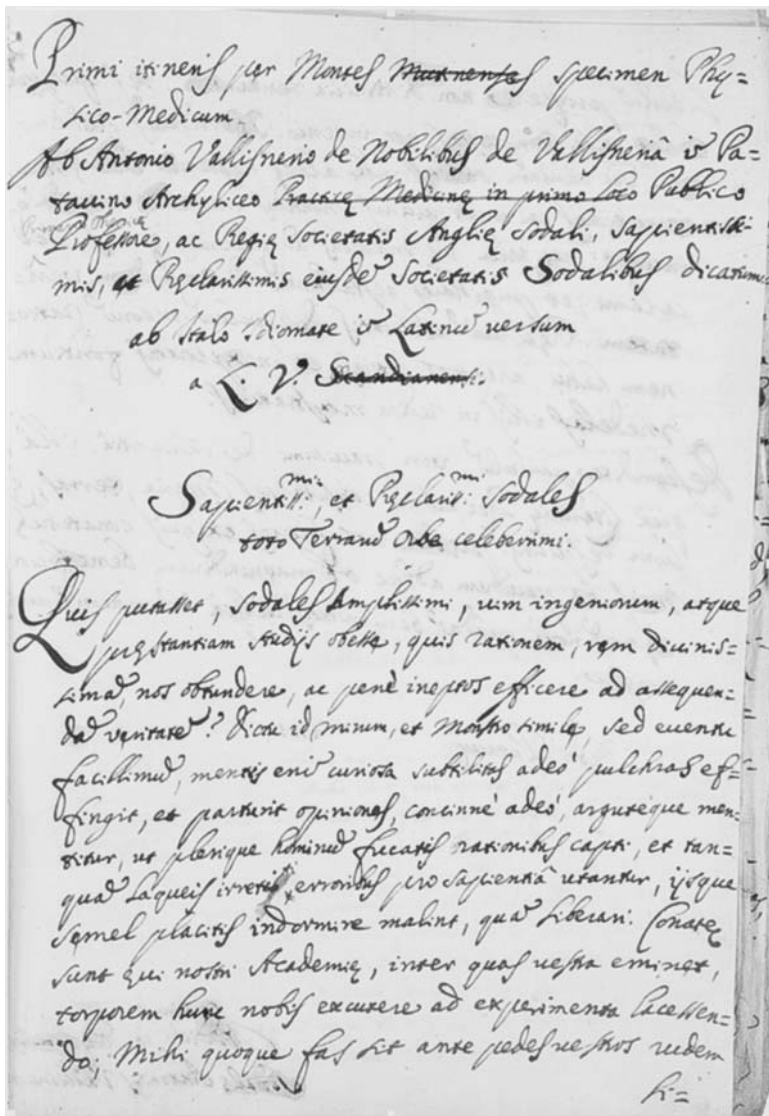 Primi itineris per Montes Mutinenses specimen Phy=
sico-Medicum
Ab Antonio Vallisnerio de Nobilibus de Vallisneriâ iũ Pa=
tavino Archyliceo Practicę Medicinę in primo loco Publico
Professore, ac Regię Societatis Anglię Sodali, Sapientissi-
mis, et Pręclarissimis eiusdẽ Societatis Sodalibus dicatum
ab Italo Idiomate iũ Latinũ versum
a L. V. Scandianensi.
Sapientiss:mi, et Pręclariss:mi Sodales
toto Terrarũ Orbe celeberrimi.
Quis putasset, Sodales Amplissimi, vim ingeniorum, atque
pręstantiam studijs obesse, quis rationem, rem divinis=
simã, nos obtundere, ac penè ineptos efficere ad assequen=
dã veritatẽ? Dictu id mirum, et Monstro simile, sed eventu
facillimũ, mentis enĩ curiosa subtilitas adeò pulchras ef=
fingit, et parturit opiniones, concinnè adeò, arguteque men=
titur, ut plerique hominũ fucatis rationibus capti, et tan=
quã laqueis irretiti, erroribus pro Sapientiâ utantur, ijsque
semel placitis indormire malint, quã liberari. Conatę
sunt qui nostri Academię, inter quas vestra eminet,
torporem hunc nobis excutere ad experimenta lacessen=
do; Mihi quoque fas sit ante pedes vestros rudem
si=